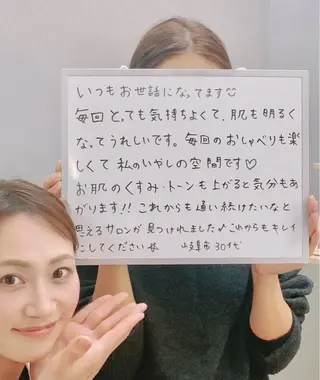 いつもお世話になってます♡
毎回とっても気持ちよくて、肌も明るく
なってうれしいです。毎回のおしゃべりも楽
しくて私のいやしの空間です♡
お肌のくすみ・トーンも上がると気分もあ
がります!!これからも通い続けたいなと
思えるサロンが見つけれました♪これからもキレイ
にしてください
岐阜市30代